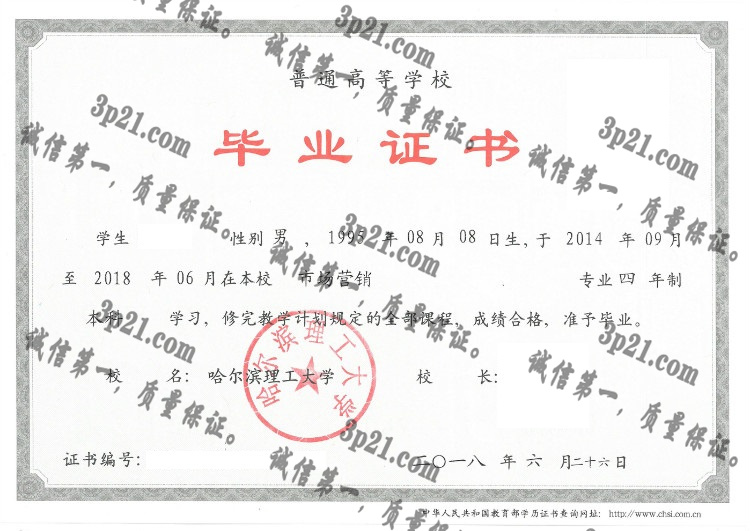 质量保证。
3p21.com
诚信第一，质量保证。
普通高等学校
3p21.com
诚信第一，质量保证。
3p21.com
诚信第一，质量保证。
毕业证书
学生 性别 男 ，1995 年 08 月 08 日生，于 2014 年 09 月
3p21.com
诚信第一，质量保证。
至 2018 年 06 月在本校 市场营销 专业 四 年制
本科 学习，修完教学计划规定的全部课程，成绩合格，准予毕业。
3p21.com
诚信第一，质量保证。
3p21.com
诚信第一，质量保证。
哈尔滨理工大学
校 名：哈尔滨理工大学 校 长：
3p21.com
诚信第一，质量保证。
证书编号： 二〇一八 年 六 月 二十六日
中华人民共和国教育部学历证书查询网址：http://www.chsi.com.cn